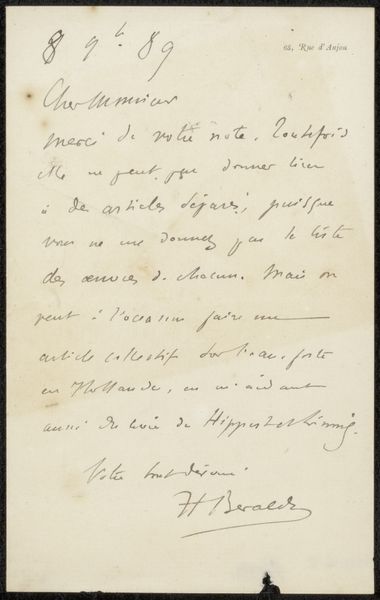 8 9b 89
63, Rue d'Anjou
Cher Monsieur
merci de votre note. Toutefois
elle ne peut pas donner lieu
à des articles séparés, puisque
vous ne me donnez pas la liste
des œuvres de chacun. Mais on
peut à l'occasion faire un
article collectif sur l'eau-forte
en Hollande, en m'aidant
aussi du livre de Hippert et Linnig.
Votre tout dévoué
H Beraldi